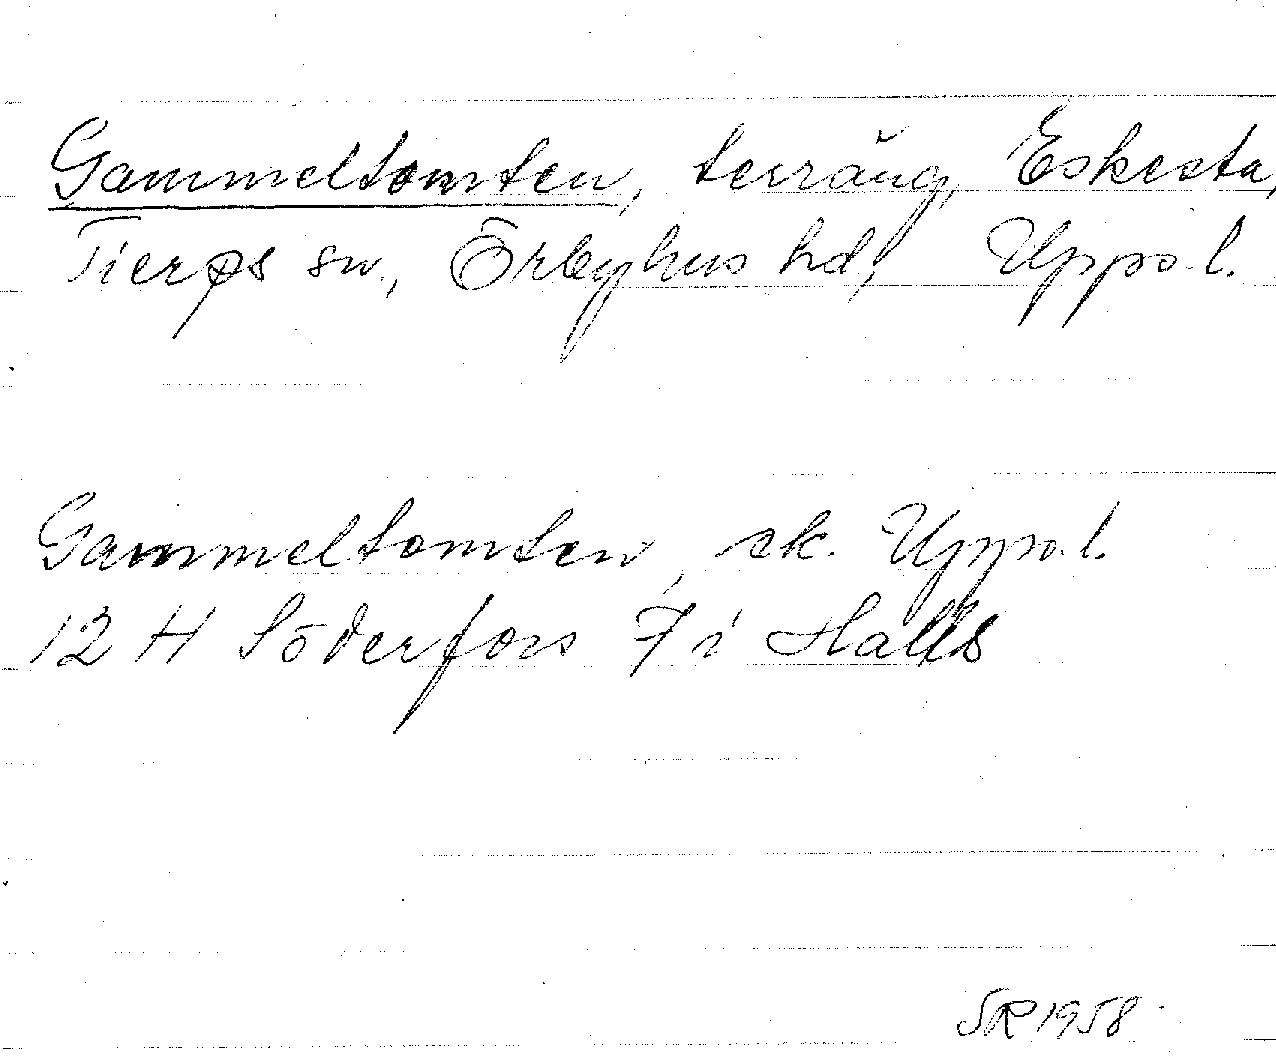 Gammeltomten, terräng, Eskesta,
Tierps sn, Örbyhus hd, Uppsa l.
Gammeltomten, ek. Uppsa l.
12 H Söderfors 7 i Halls
SR 1958